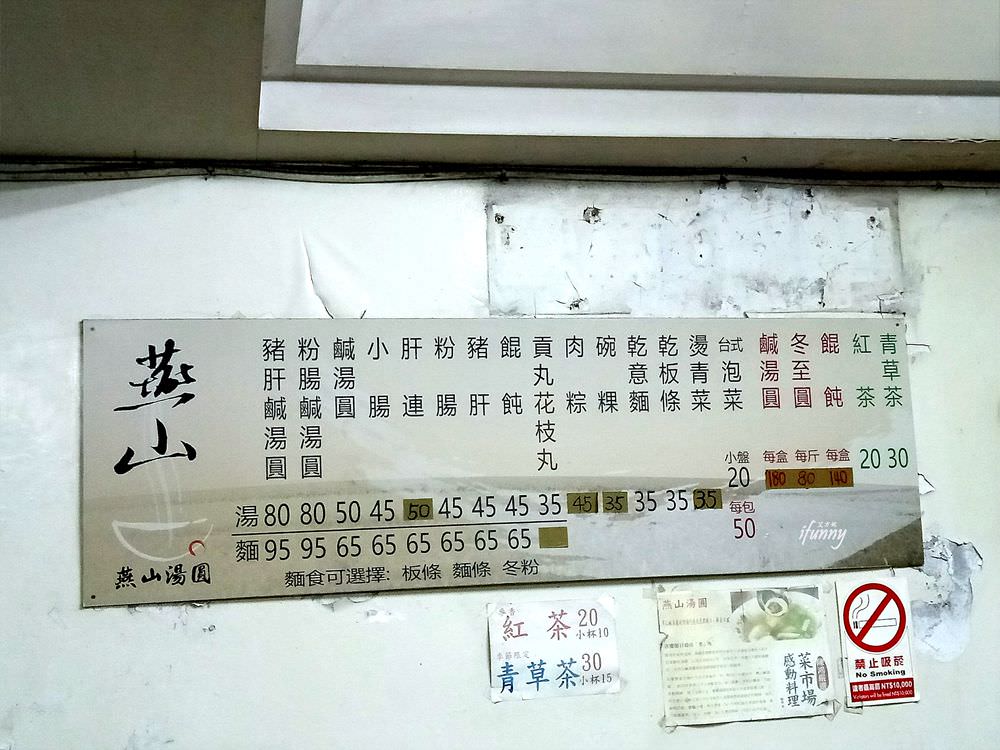 燕山
燕山湯圓
豬肝鹹湯圓
粉腸鹹湯圓
鹹湯圓
小腸
肝連
粉腸
豬肝
餛飩
貢丸花枝丸
肉粽
碗粿
乾意麵
乾板條
燙青菜
台式泡菜
鹹湯圓
冬至圓
餛飩
紅茶
青草茶
小盤 每盒 每斤 每盒
20 180 80 140 20 30
湯 80 80 50 45 50 45 45 45 35 45 35 35 35 35
每包
50
麵 95 95 65 65 65 65 65 65
麵食可選擇: 板條 麵條 冬粉
艾方妮
ifunny
紅茶 20
小杯10
季節限定
青草茶 30
小杯15
燕山湯圓
菜市場
感動料理
禁止吸菸
No Smoking
違者最高罰 NT$10,000